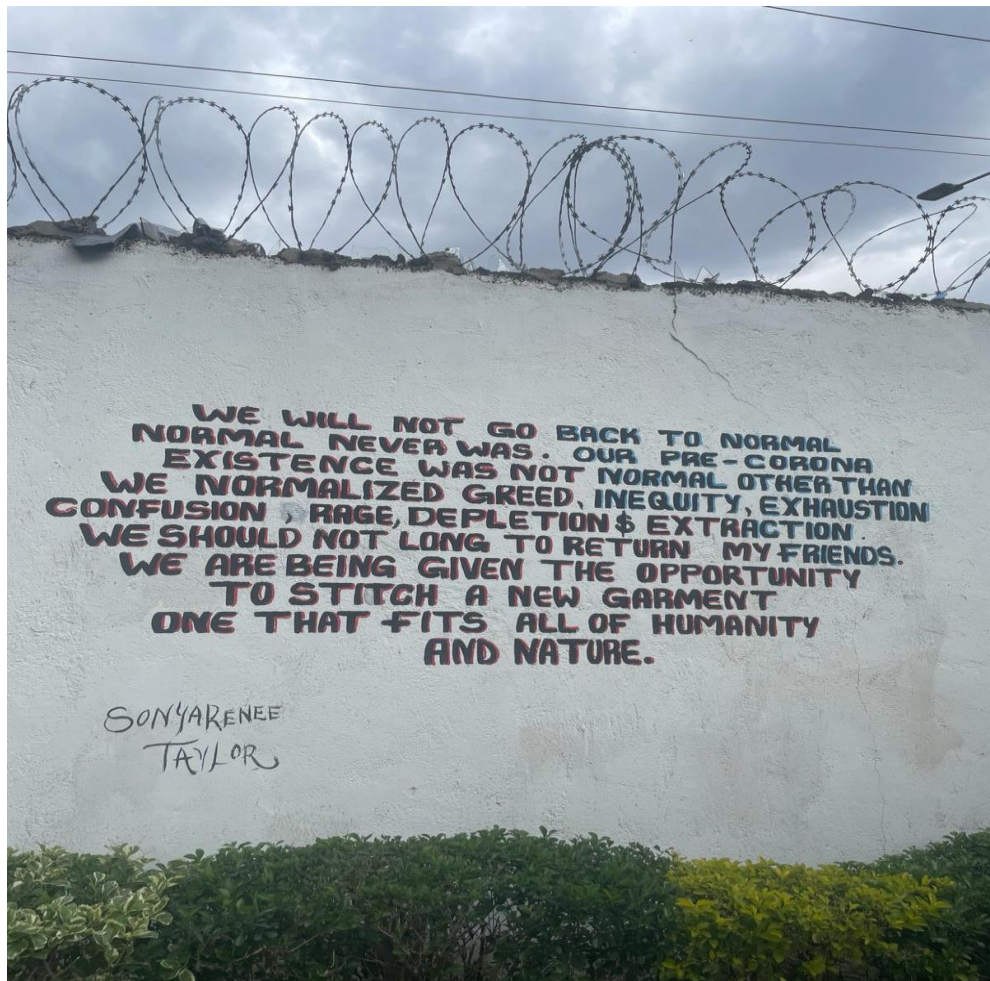 WE WILL NOT GO BACK TO NORMAL
NORMAL NEVER WAS. OUR PRE-CORONA
EXISTENCE WAS NOT NORMAL OTHER THAN
WE NORMALIZED GREED, INEQUITY, EXHAUSTION
CONFUSION, RAGE, DEPLETION $ EXTRACTION.
WE SHOULD NOT LONG TO RETURN MY FRIENDS.
WE ARE BEING GIVEN THE OPPORTUNITY
TO STITCH A NEW GARMENT
ONE THAT FITS ALL OF HUMANITY
AND NATURE.
SONYARENEE
TAYLOR